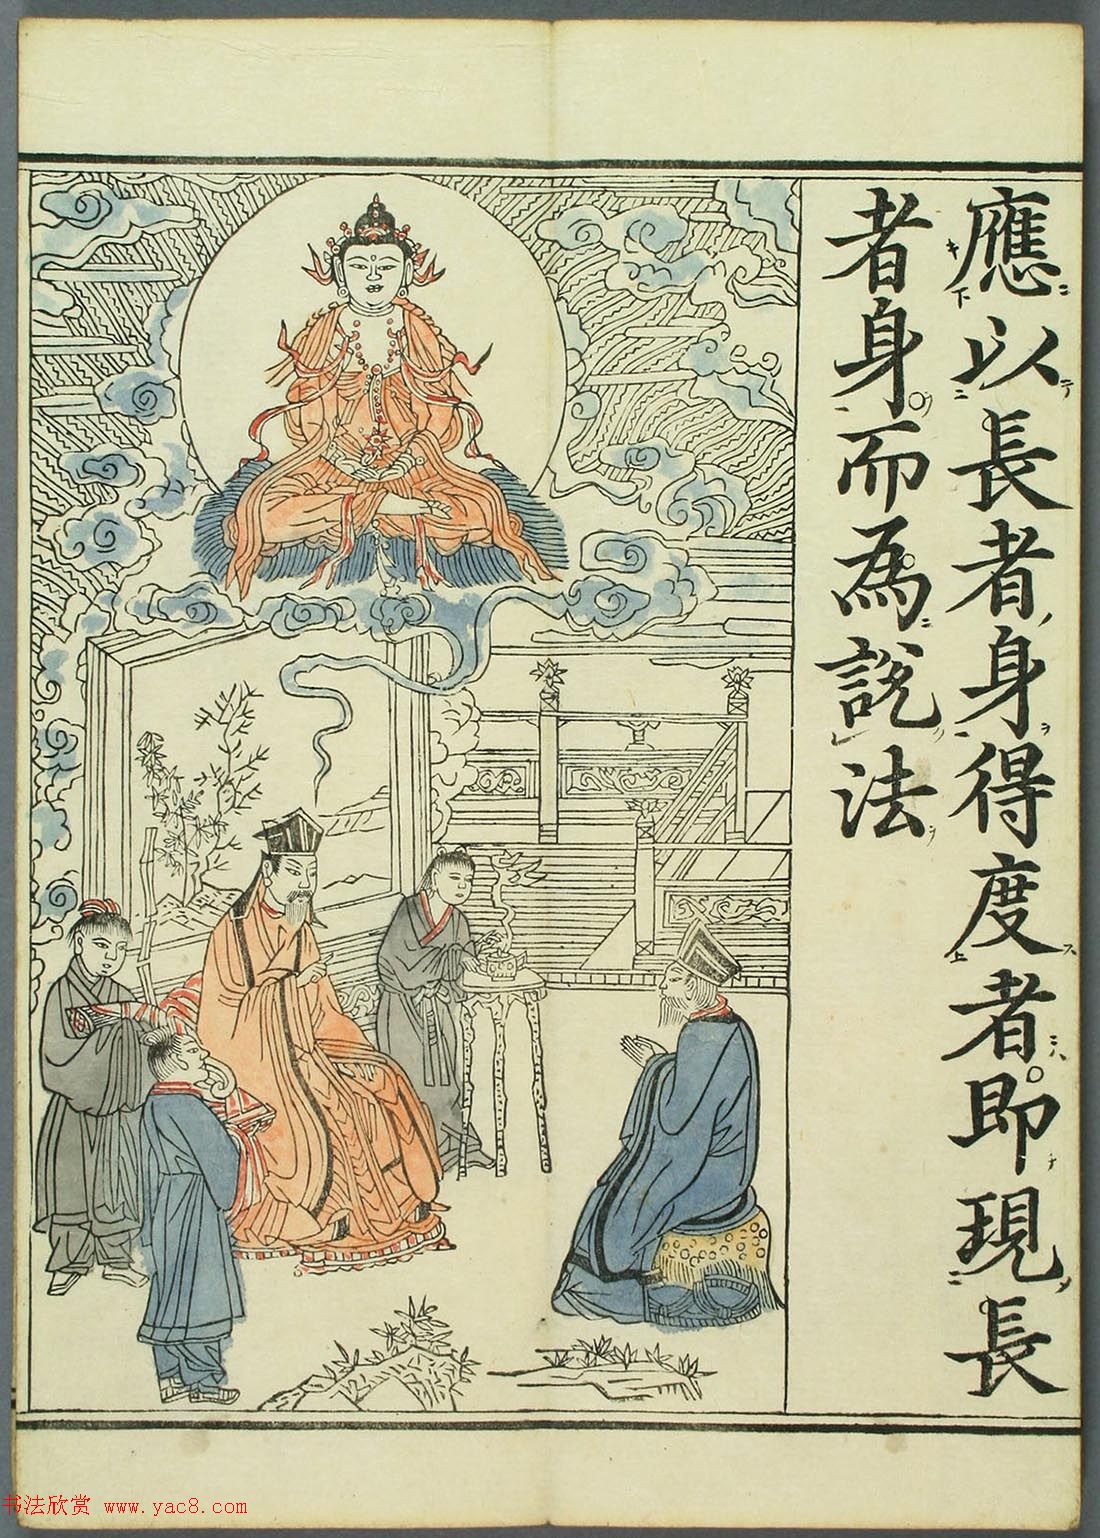 應以長者身得度者即現長
者身而為說法
书法欣赏 www.yac8.com